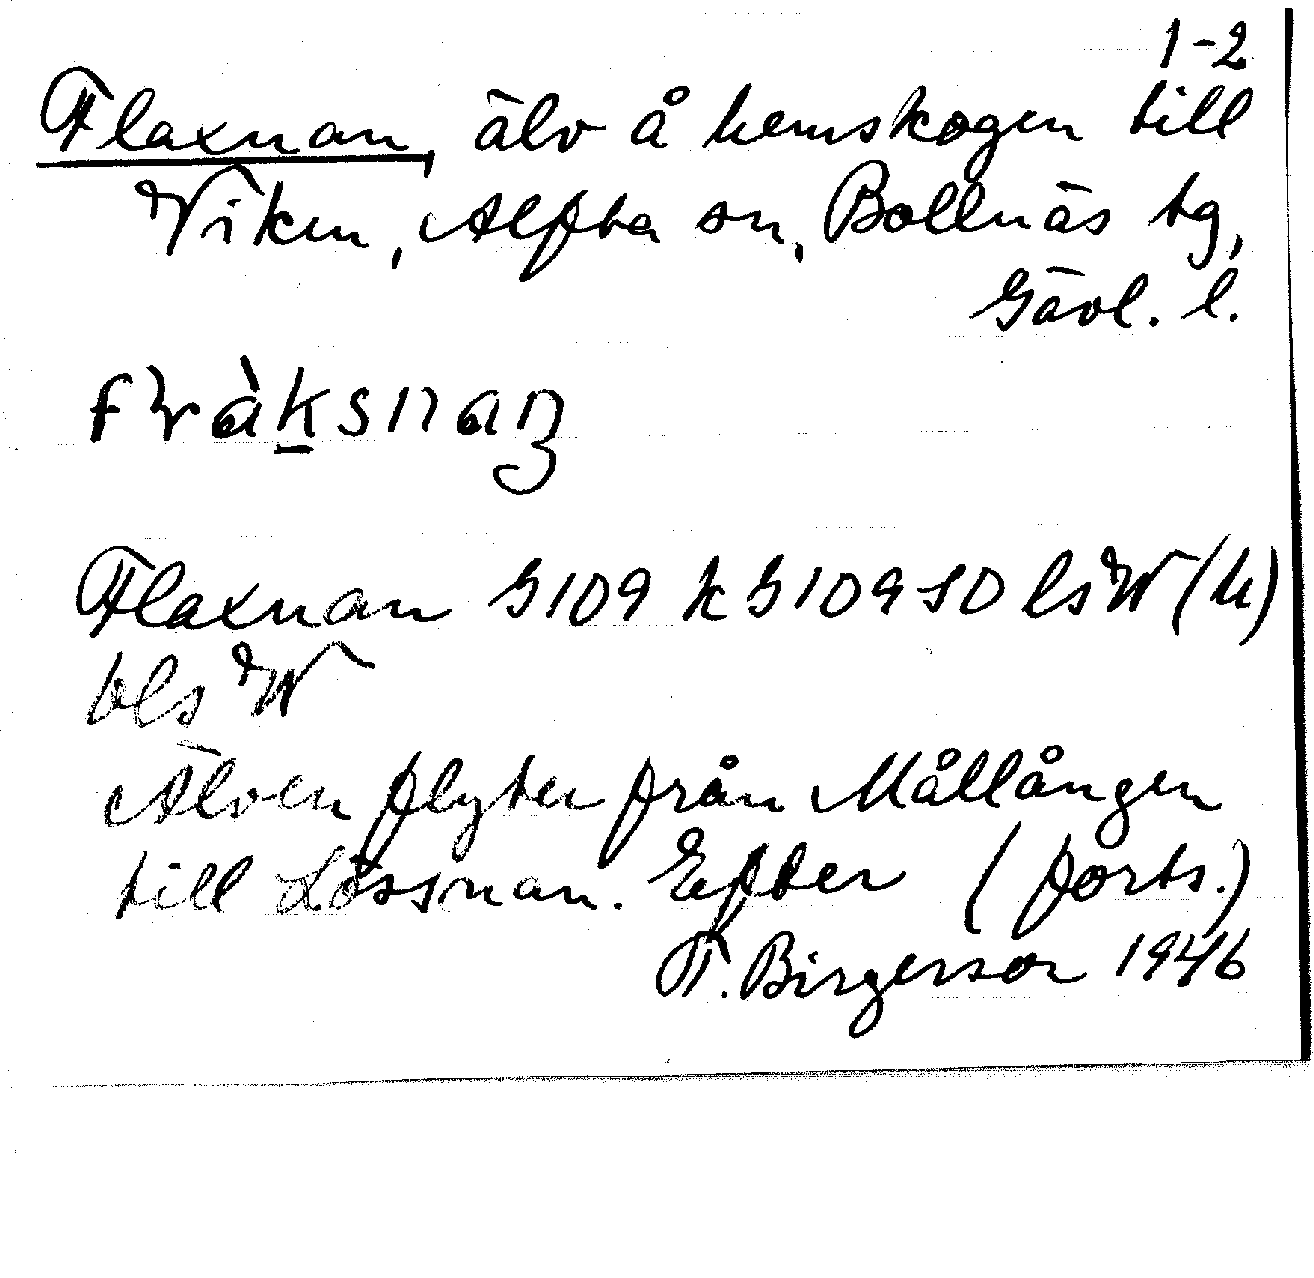 1-2
Flaxnan, älv å hemskogen till
Viken, Alfta sn, Bollnäs tg,
Gävl. l.
Flaxnan G109 k G109 SO ls W (h)
bls W
Älven flyter från Mållången
till Lössnan. Efter (forts.)
T. Birgerson 1946